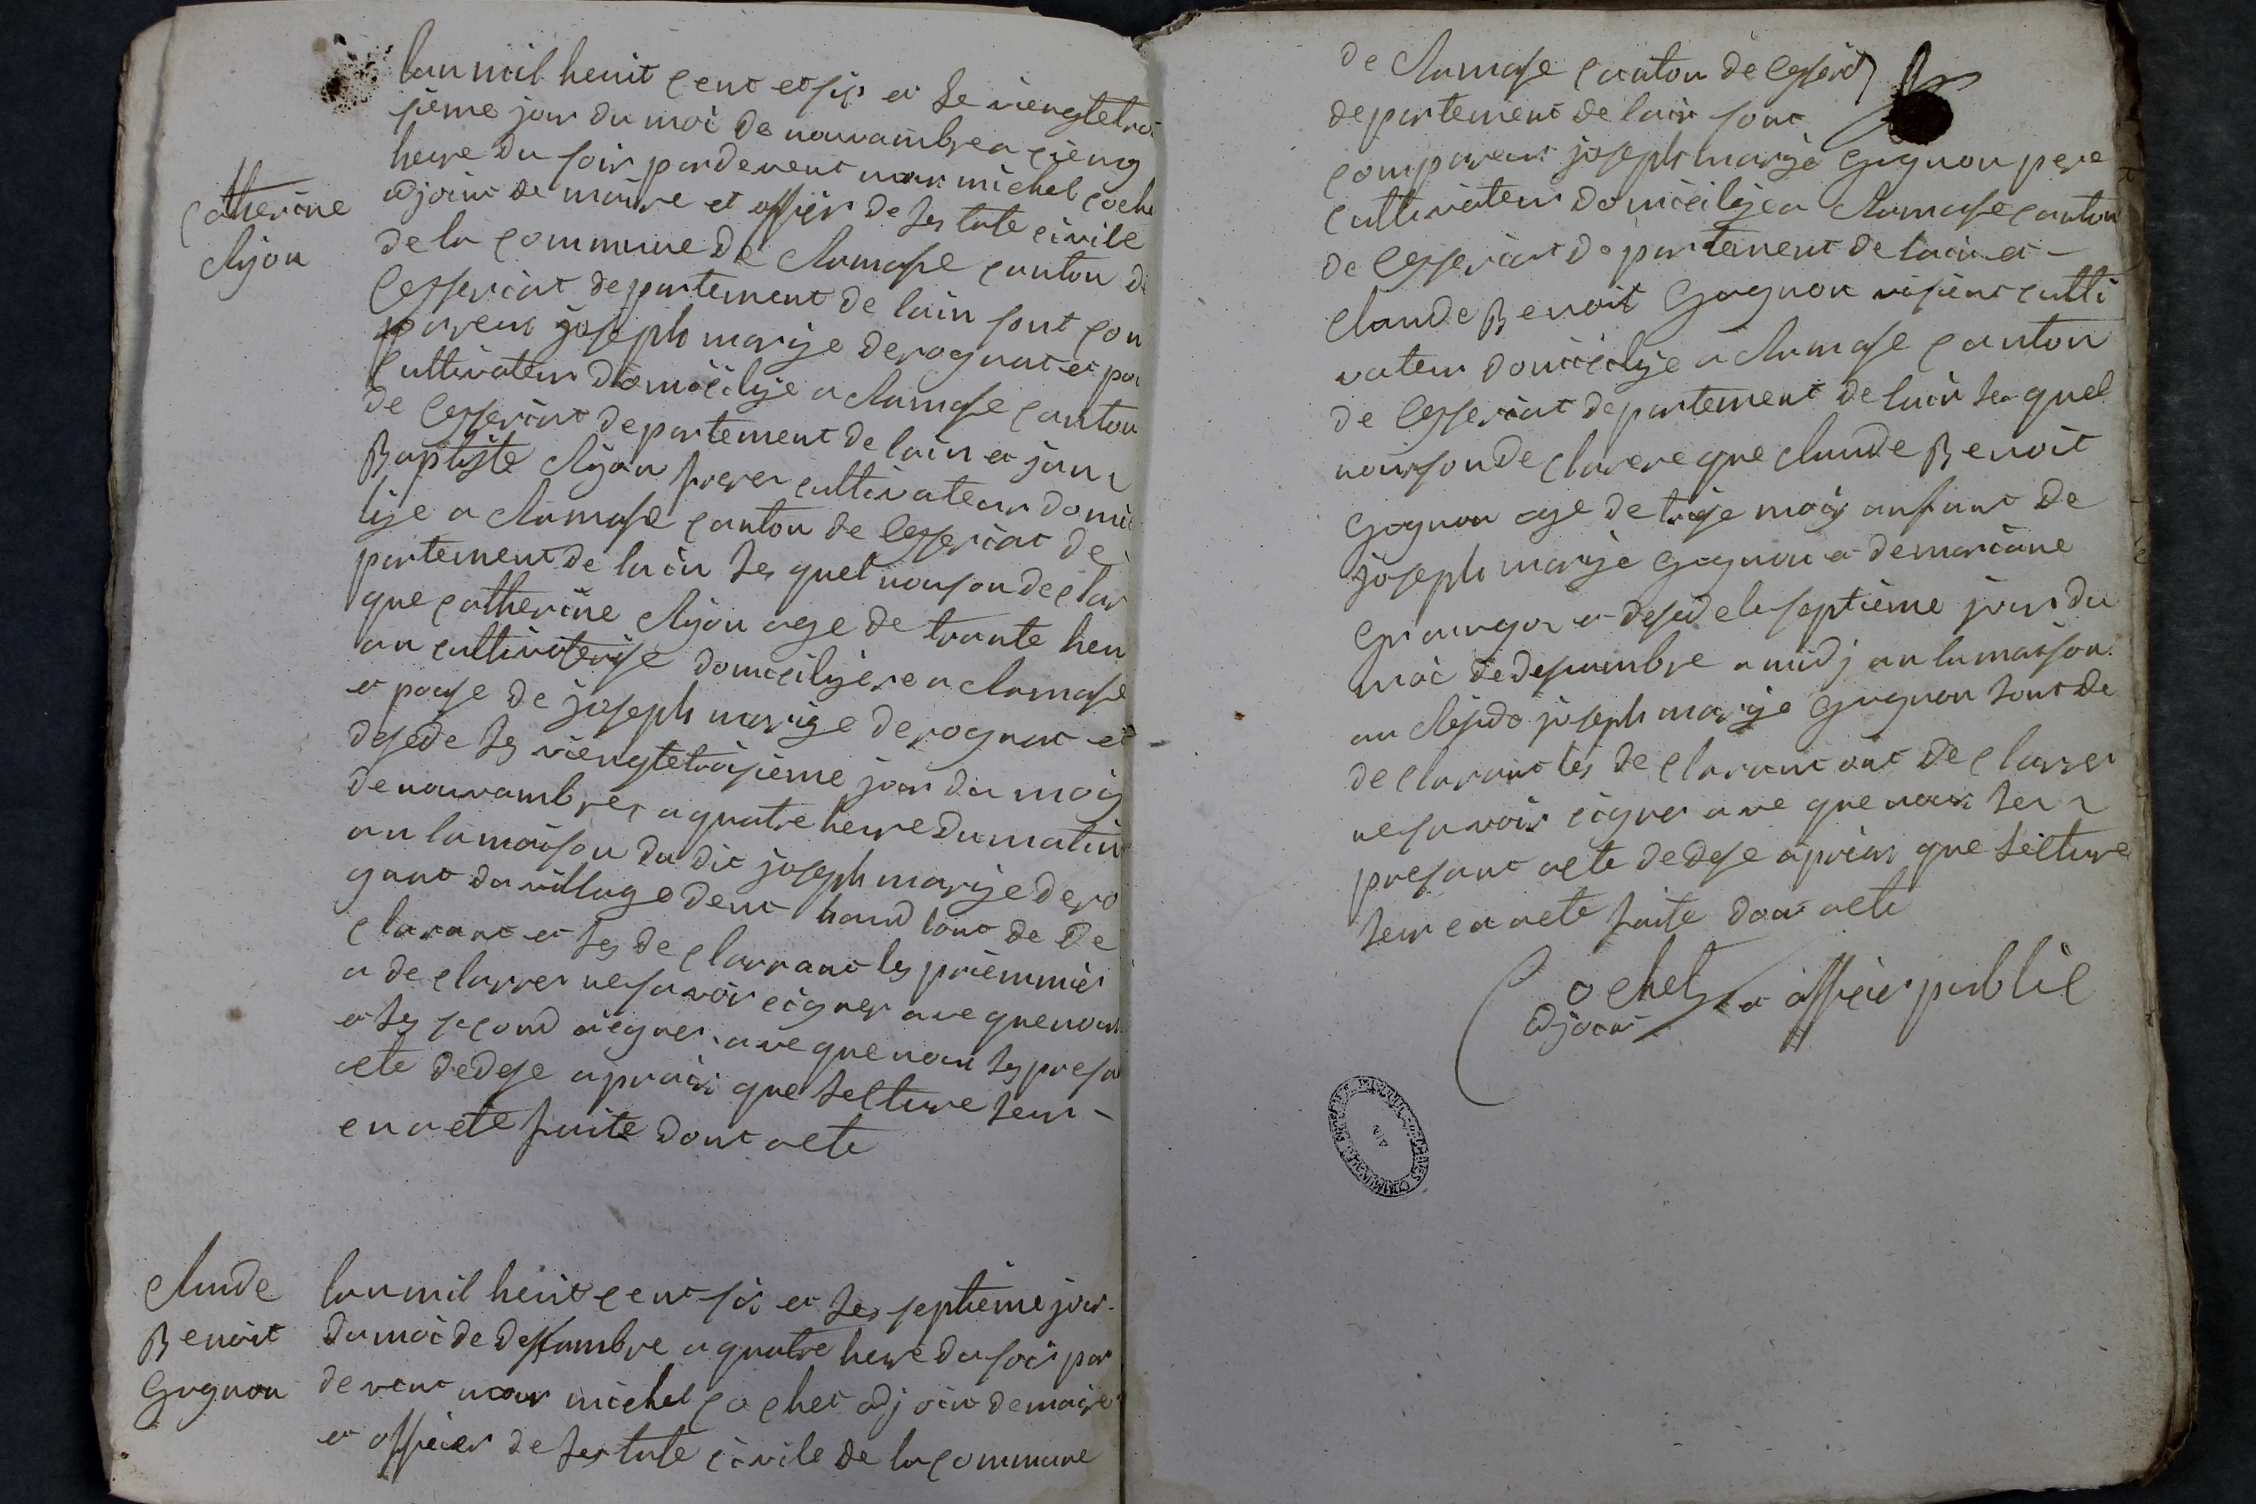 Catherine
Nyon
lan mil heuit cent et sis et le viengtetroi
sieme jour du moi de nouvambre a cienq
heure du soir pardevent nour michel coche
adjoint de maire et offiser de les tate civile
de la commune de Ramase canton de
Ceseriat departement de lain sont con
pareus joseph marije derognat et pou
cultivateur domicilije a Ramase canton
de Ceseriat departement de lain et jan
Baptiste Nyon frere cultivateur domici
lije a Ramase canton de Ceseriat de
partement de lain les quel nouson declar
que catherine Nyon age de trante heu
an cultivaterise domicilijere a Ramase
et pouse de joseph marije derognat et
desede les viengtetroisieme jour du mois
de nouvambre a quatre heure du matin
an la maison du dit joseph marije dero
gnat du village dent haud tout de De
clarant et les declarrant les priemmier
a declarrer ne savoir cigner ave que nous
et les second a cigner ave que nous les presa
acte dedese aprais que lecture leur
en a ete faite dont acte
Claude
Benoit
Gognon
lan mil heuit cent sis et les septieme jour
du moi de dessambre a quatre heure du soir par
devent nour michel cochet adjoint de maire
et officier de les tate civile de la commune
de Ramase canton de Ceseriat
departement de lain sont
compareus joseph marije Gognon pere
cultivateur domicilije a Ramase canton
de Ceseriat departement de lain et
Claude Benoit Gognon visient culti
vateur domicilije a Ramase canton
de Ceseriat departement de lain les quel
nouson declarere que claude Benoit
Gognon age de treise mois anfant de
joseph marije Gognon et de mariane
a desede le septieme jour du
moi de desambre a midj an la maison
au joseph marije Gognon tout de
declarant les declarant ont declarrer
ne savoir cigner ave que nous les
presant acte dedese aprais que lecture
leur en a ete faite dont acte
Cochet
adjoint et officier publie